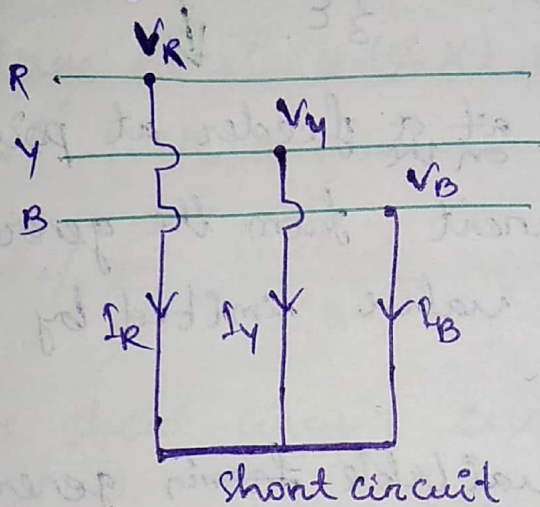 V_R
R
V_Y
Y
V_B
B
I_R I_Y I_B
short circuit